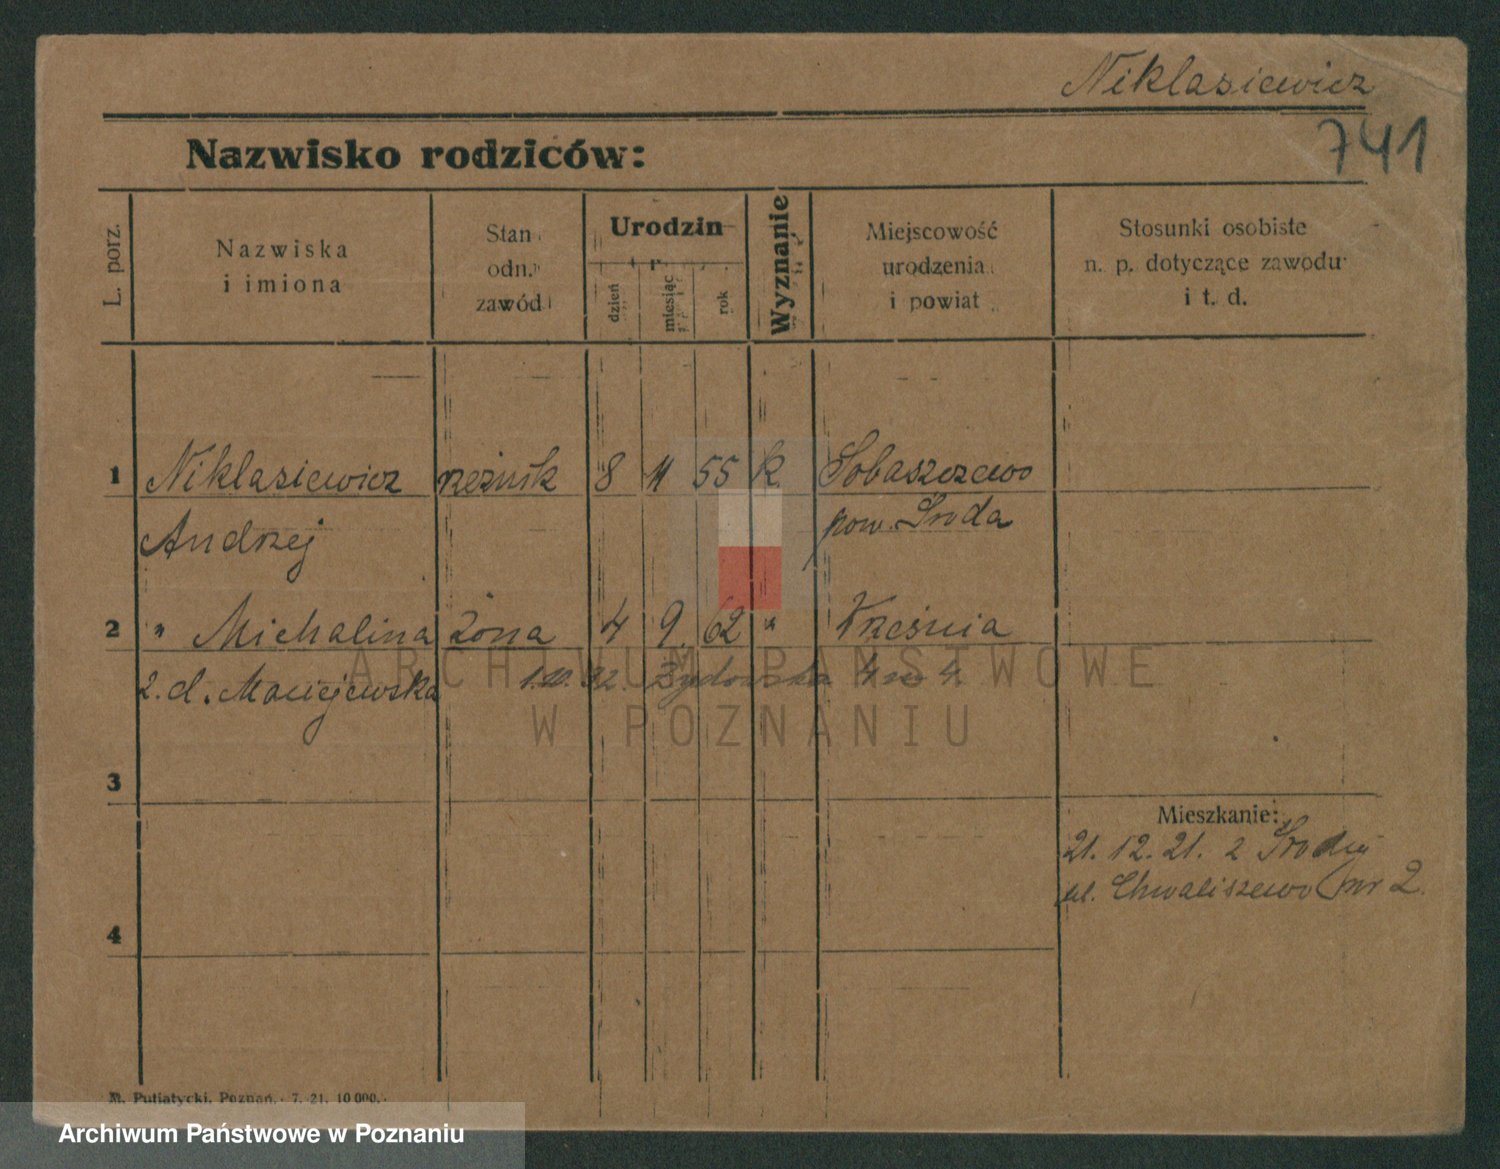 Niklasiewicz
741
Nazwisko rodziców:
L. porz.
Nazwiska
i imiona
Stan
odn.
zawód
Urodzin
dzień
miesiąc
rok
Wyznanie
Miejscowość
urodzenia
i powiat
Stosunki osobiste
n. p. dotyczące zawodu
i t. d.
1 Niklasiewicz rzeźnik 8 11 55 k. Sobaszczewo
Andrzej pow. Środa
2 " Michalina żona 4 9 62 " Września
z. d. Maciejewska Żydowska
ARCHIWUM PAŃSTWOWE
W POZNANIU
3
Mieszkanie:
21. 12. 21. z Środy
ul. Chwaliszewo nr 2.
4
M. Putiatycki, Poznań. - 7. 21. 10 000.
Archiwum Państwowe w Poznaniu